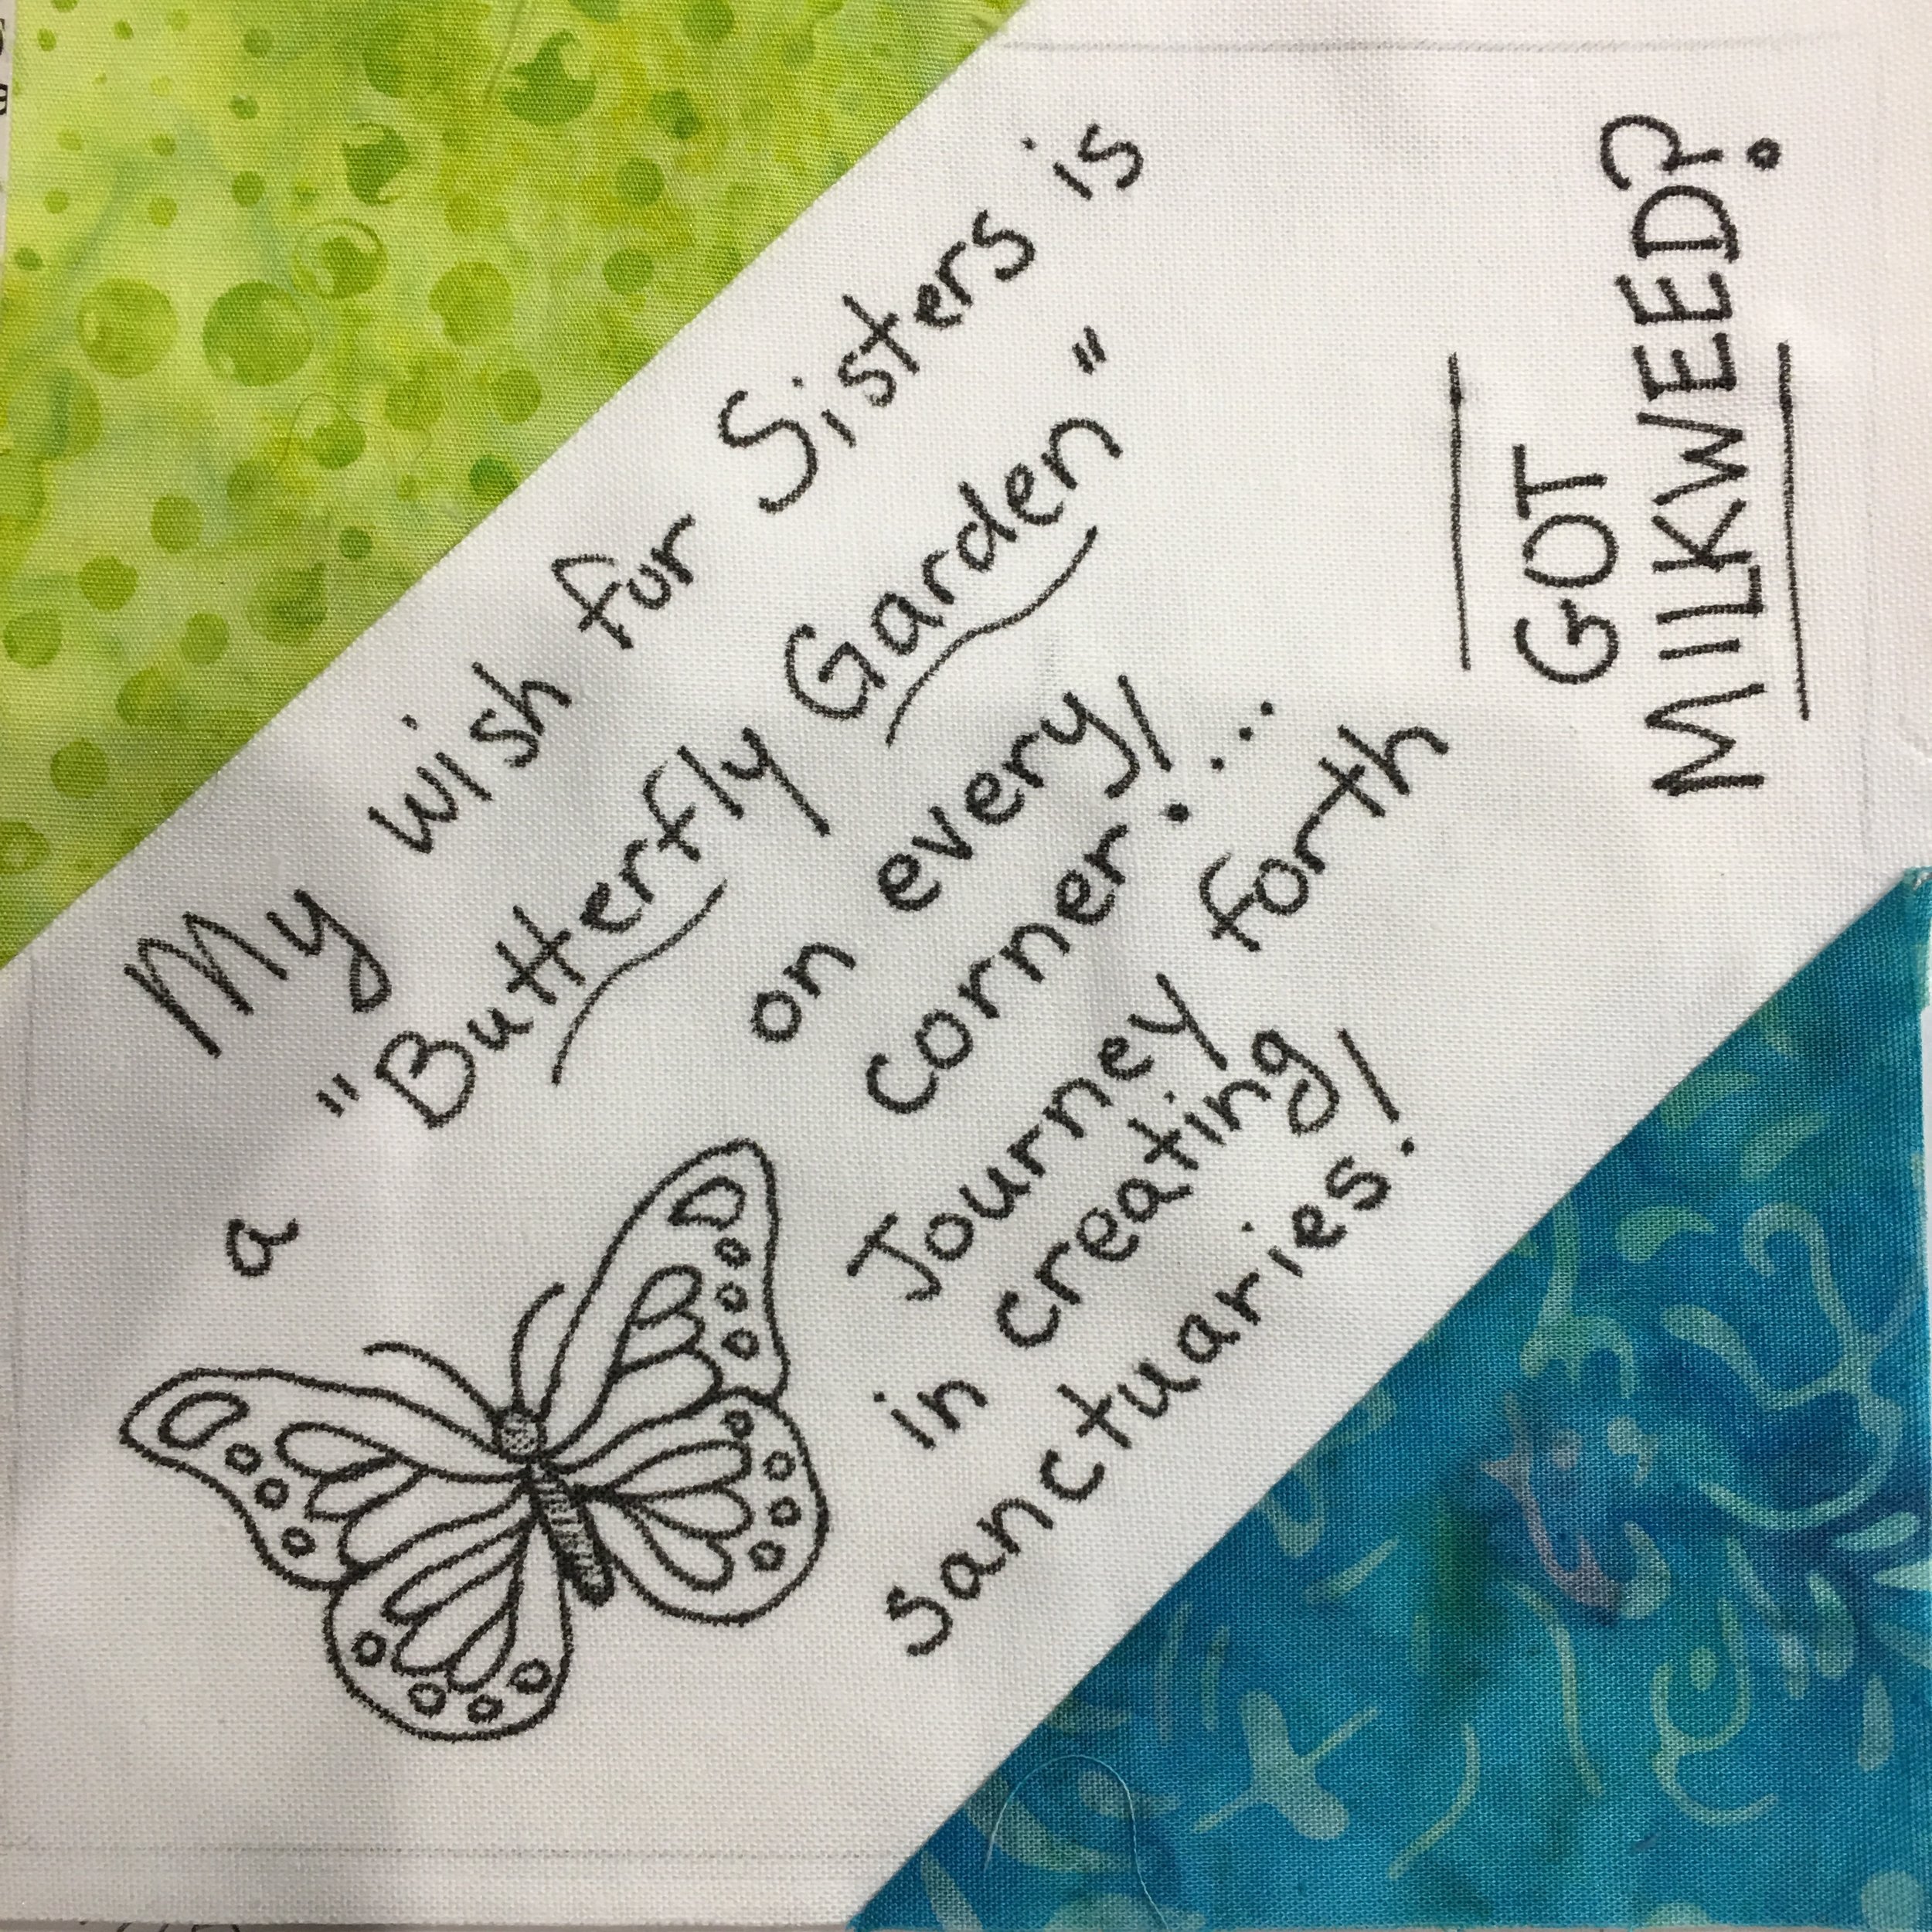 My wish for Sisters is
a "Butterfly Garden"
on every
corner! ...
Journey forth
in creating
sanctuaries!
GOT
MILKWEED?